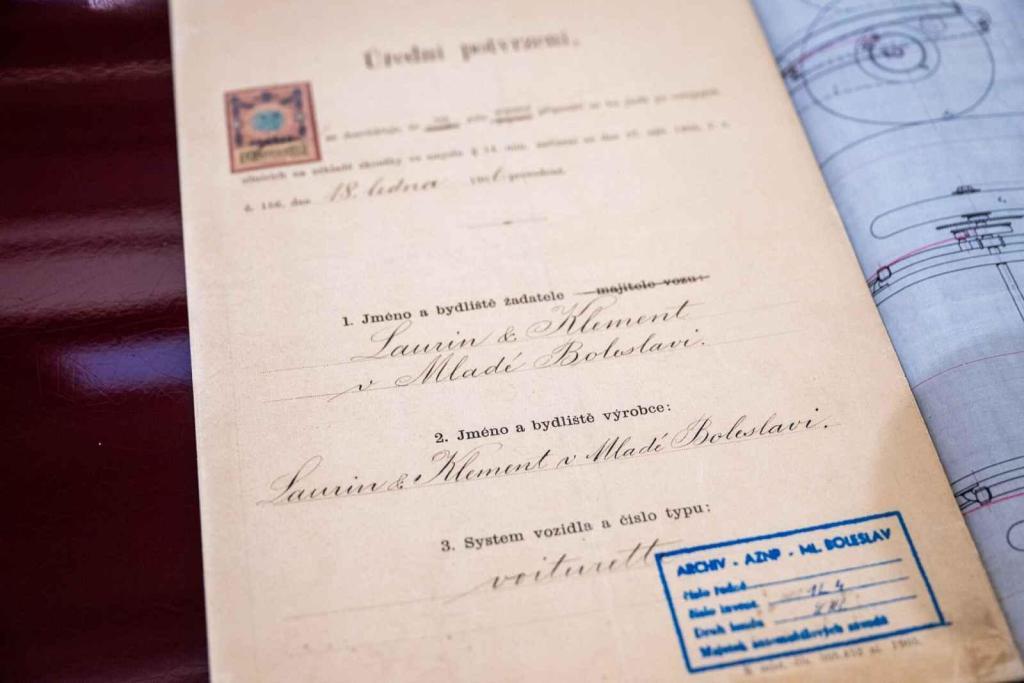 Úřední potvrzení.
se dosvědčuje, že
silnicích na základě zkoušky ve smyslu § 14. min. nařízení ze dne 27. září 1905, ř. z.
č. 156, dne 18. ledna 190 provedené.
1. Jméno a bydliště žadatele majitele vozu:
Laurin & Klement
v Mladé Boleslavi.
2. Jméno a bydliště výrobce:
Laurin & Klement v Mladé Boleslavi.
3. System vozidla a číslo typu:
voiturett
ARCHIV - AZNP - ML. BOLESLAV
Číslo řadné
Číslo invent.
Druh fondu
Majetek automobilových závodů